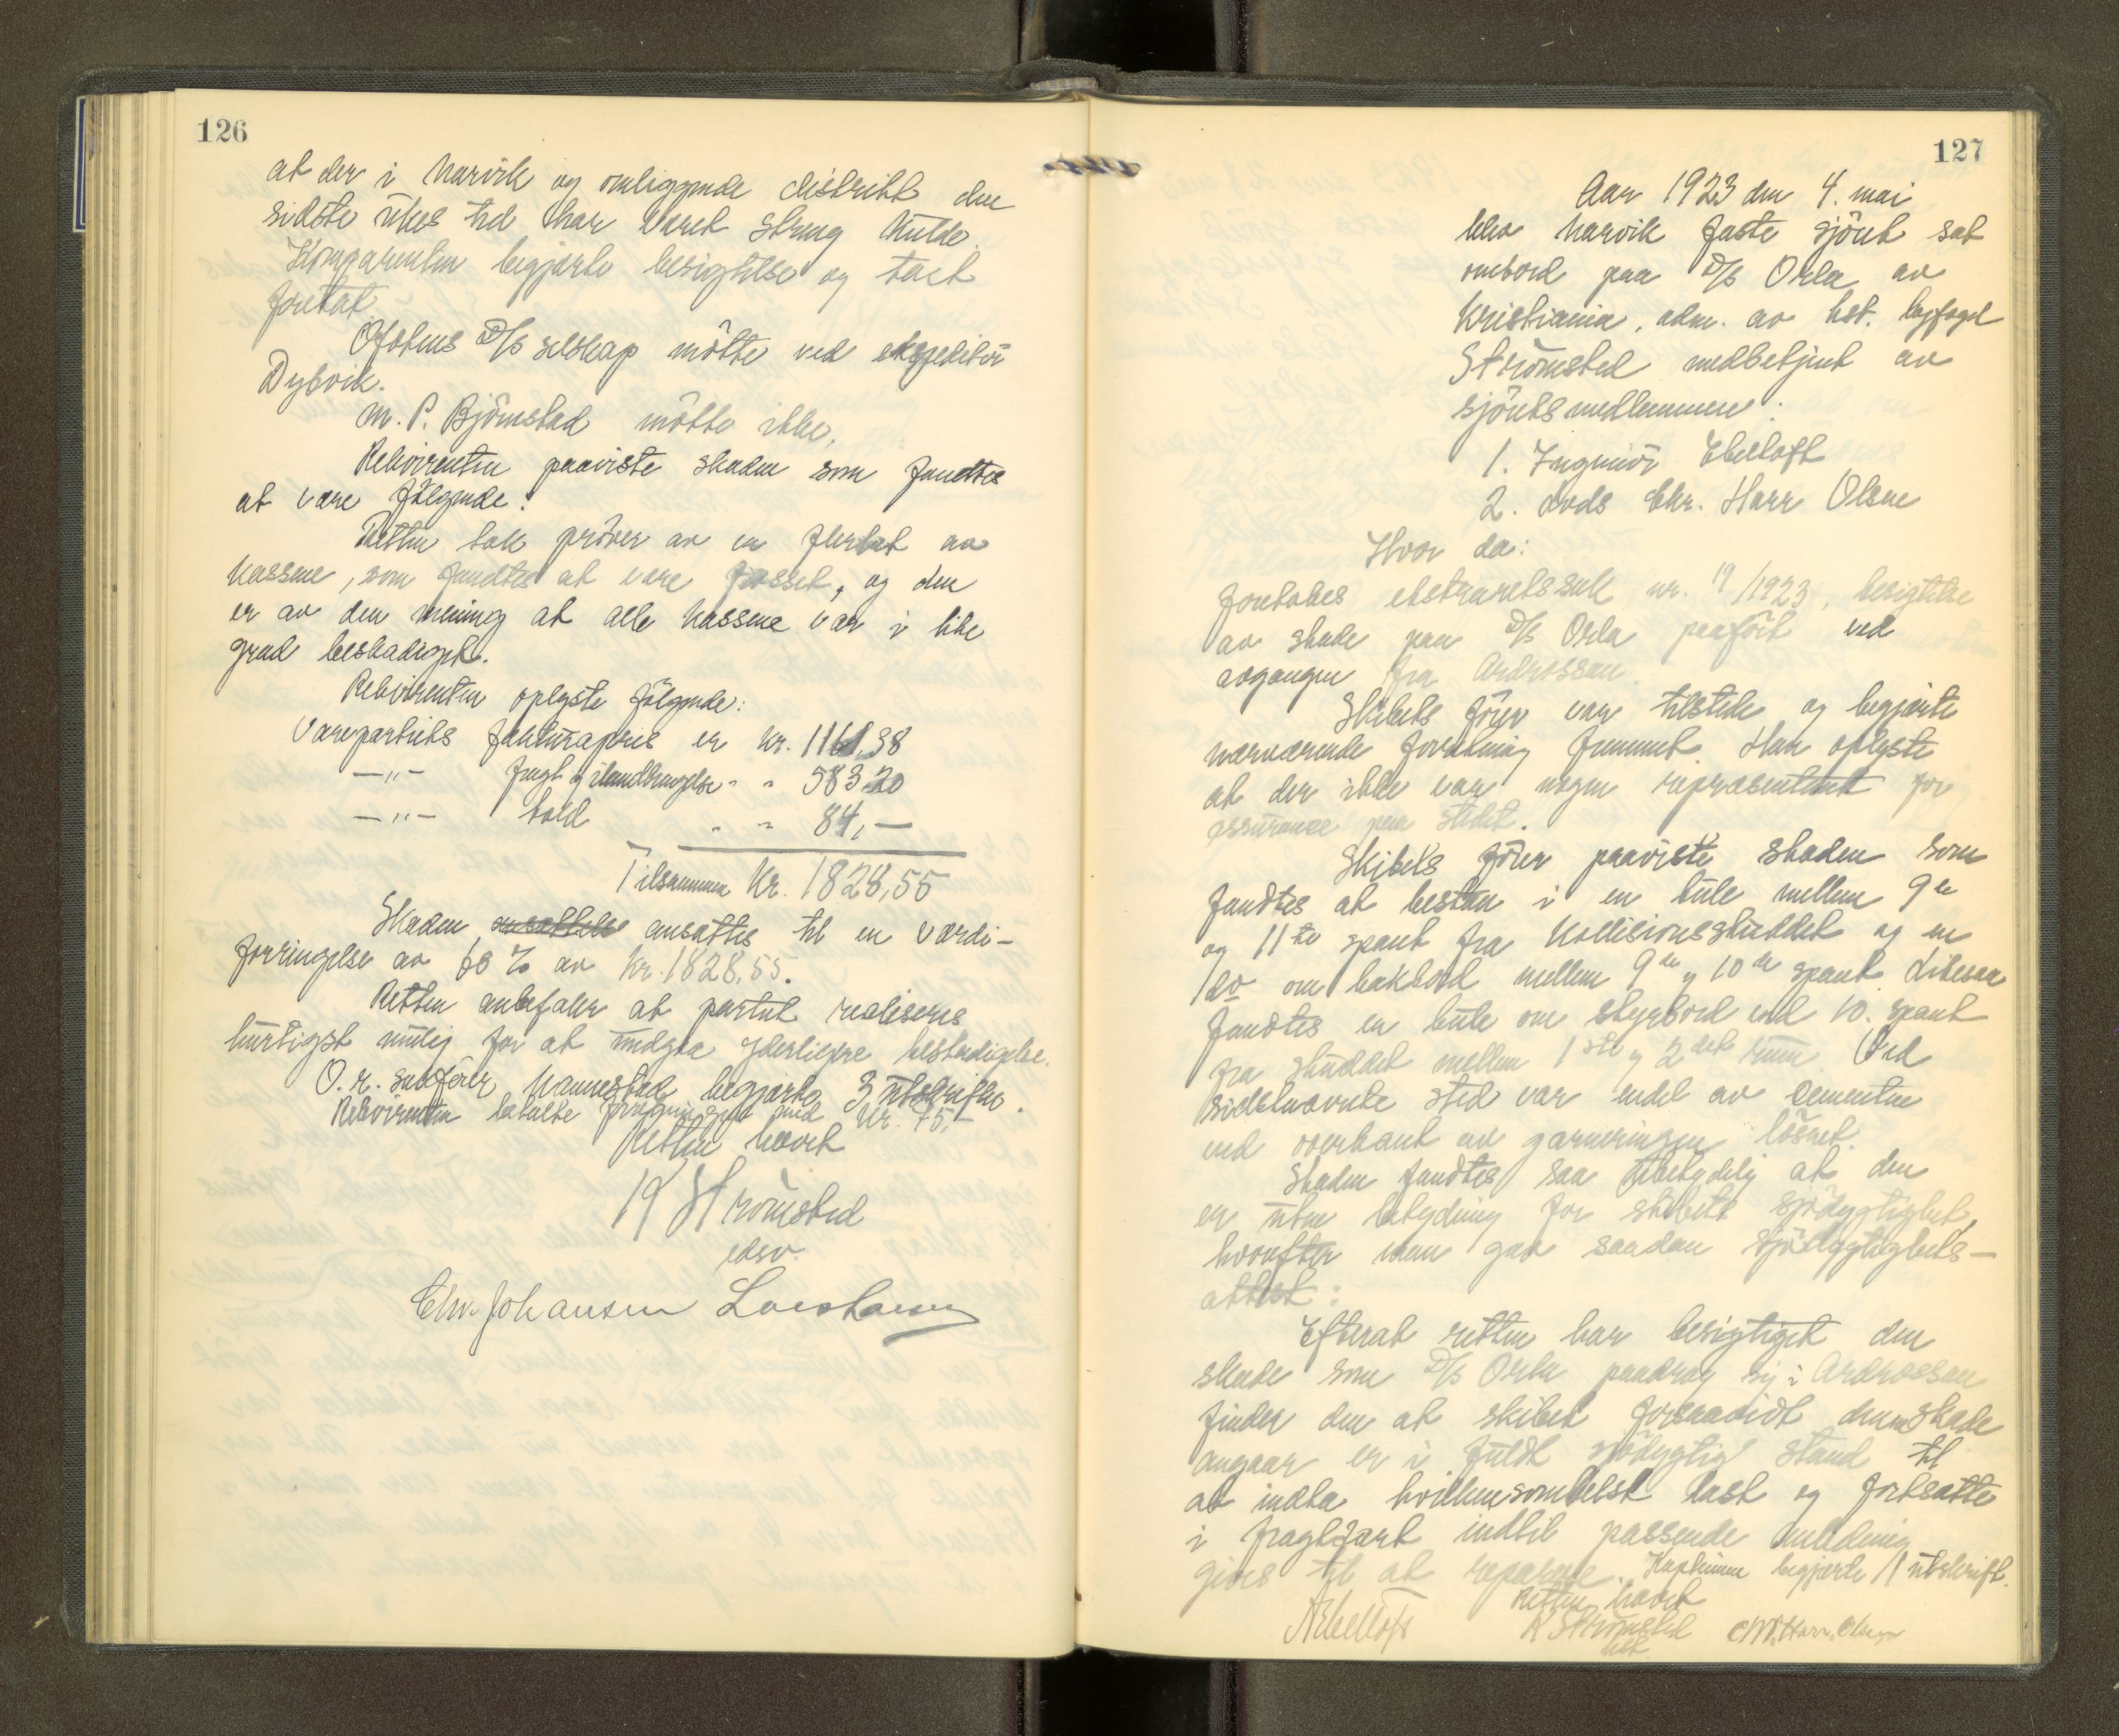 126
at der i Narvik og omliggende distrikt den
sidste ukes tid har været streng kulde.
Komparenten begjærte besigtelse og takst
foretat.
Ofotens D/S selskap møtte ved ekspeditør
Dybvik.
M. P. Bjørnstad møtte ikke.
Rekvirenten paaviste skaden som fandtes
at være følgende:
Retten tok prøver av en flerhet av
kassene, som fandtes at være frosset, og den
er av den mening at alle kassene var i like
grad beskadiget.
Rekvirenten oplyste følgende:
Varepartiets fakturapris er kr. 1161,38
—„— fragt og ilandbringelse „ „ 583.20
—„— told „ „ 84,—
Tilsammen Kr. 1828,55
Skaden ansættelse ansættes til en værdi-
forringelse av 60 % av Kr. 1828,55.
Retten anbefaler at partiet realiseres
hurtigst mulig for at undgaa yderligere beskadigelse.
O.r. sakfører Hannestad begjærte 3 utskrifter.
Rekvirenten betalte forretningen med kr. 75,-
Retten hævet
K Strømsted
edsv.
Chr. Johansen
127
Aar 1923 den 4. mai
blev Narvik faste sjøret sat
ombord paa D/S Orla av
Kristiania, adm. av kst. byfogd
Strømsted medbetjent av
sjøretsmedlemmene:
1. Ingeniør Ebeltoft
2. Lods Chr. Harr Olsen
Hvor da:
Foretokes ekstraretssak nr. 19/1923, besigtelse
av skade paa D/S Orla paaført ved
avgangen fra Ardrossan.
Skibets fører var tilstede og begjærte
nærværende forretning fremmet. Han oplyste
at der ikke var nogen repræsentant for
assurance paa stedet.
Skibets fører paaviste skaden som
fandtes at bestaa i en bule mellem 9de
og 11te spant fra kollisionsskuddet og en
do om bakbord mellem 9de og 10de spant. Likesaa
fandtes en bule om styrbord ved 10. spant
fra skuddet mellem 1ste og 2det rum. Ved
sidstnævnte sted var endel av cementen
ved overkant av garneringen løsnet.
Skaden fandtes saa ubetydelig at den
er uten betydning for skibets sjødygtighet,
hvorefter man gav saadan sjødygtighets-
attest:
Efterat retten har besigtiget den
skade som D/S Orla paadrog sig i Ardrossan
finder den at skibet forsaavidt denne skade
angaar er i fuldt sjødygtig stand til
at indta hvilkensomhelst last og fortsætte
i fragtfart indtil passende anledning
gives til at reparere. Kapteinen begjærte 1 utskrift.
Retten hævet
AEbeltoft K Strømsted Chr. Harr. Olsen
kst